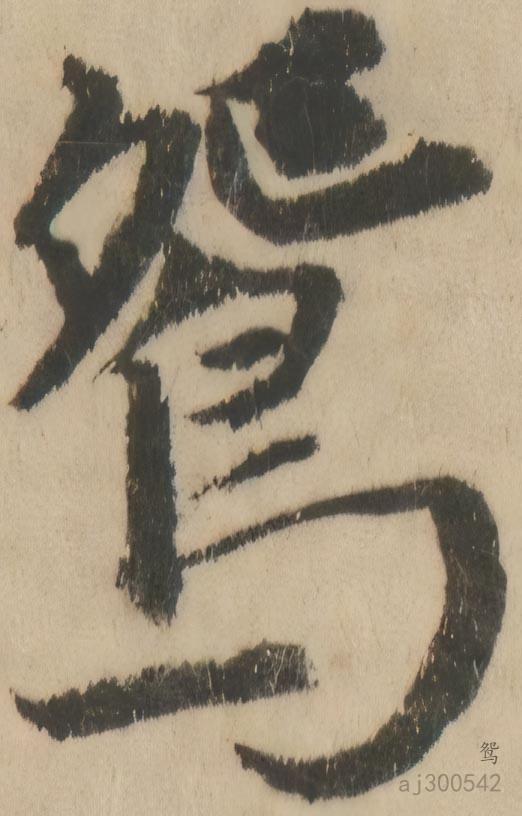 鴛
鸳
aj300542